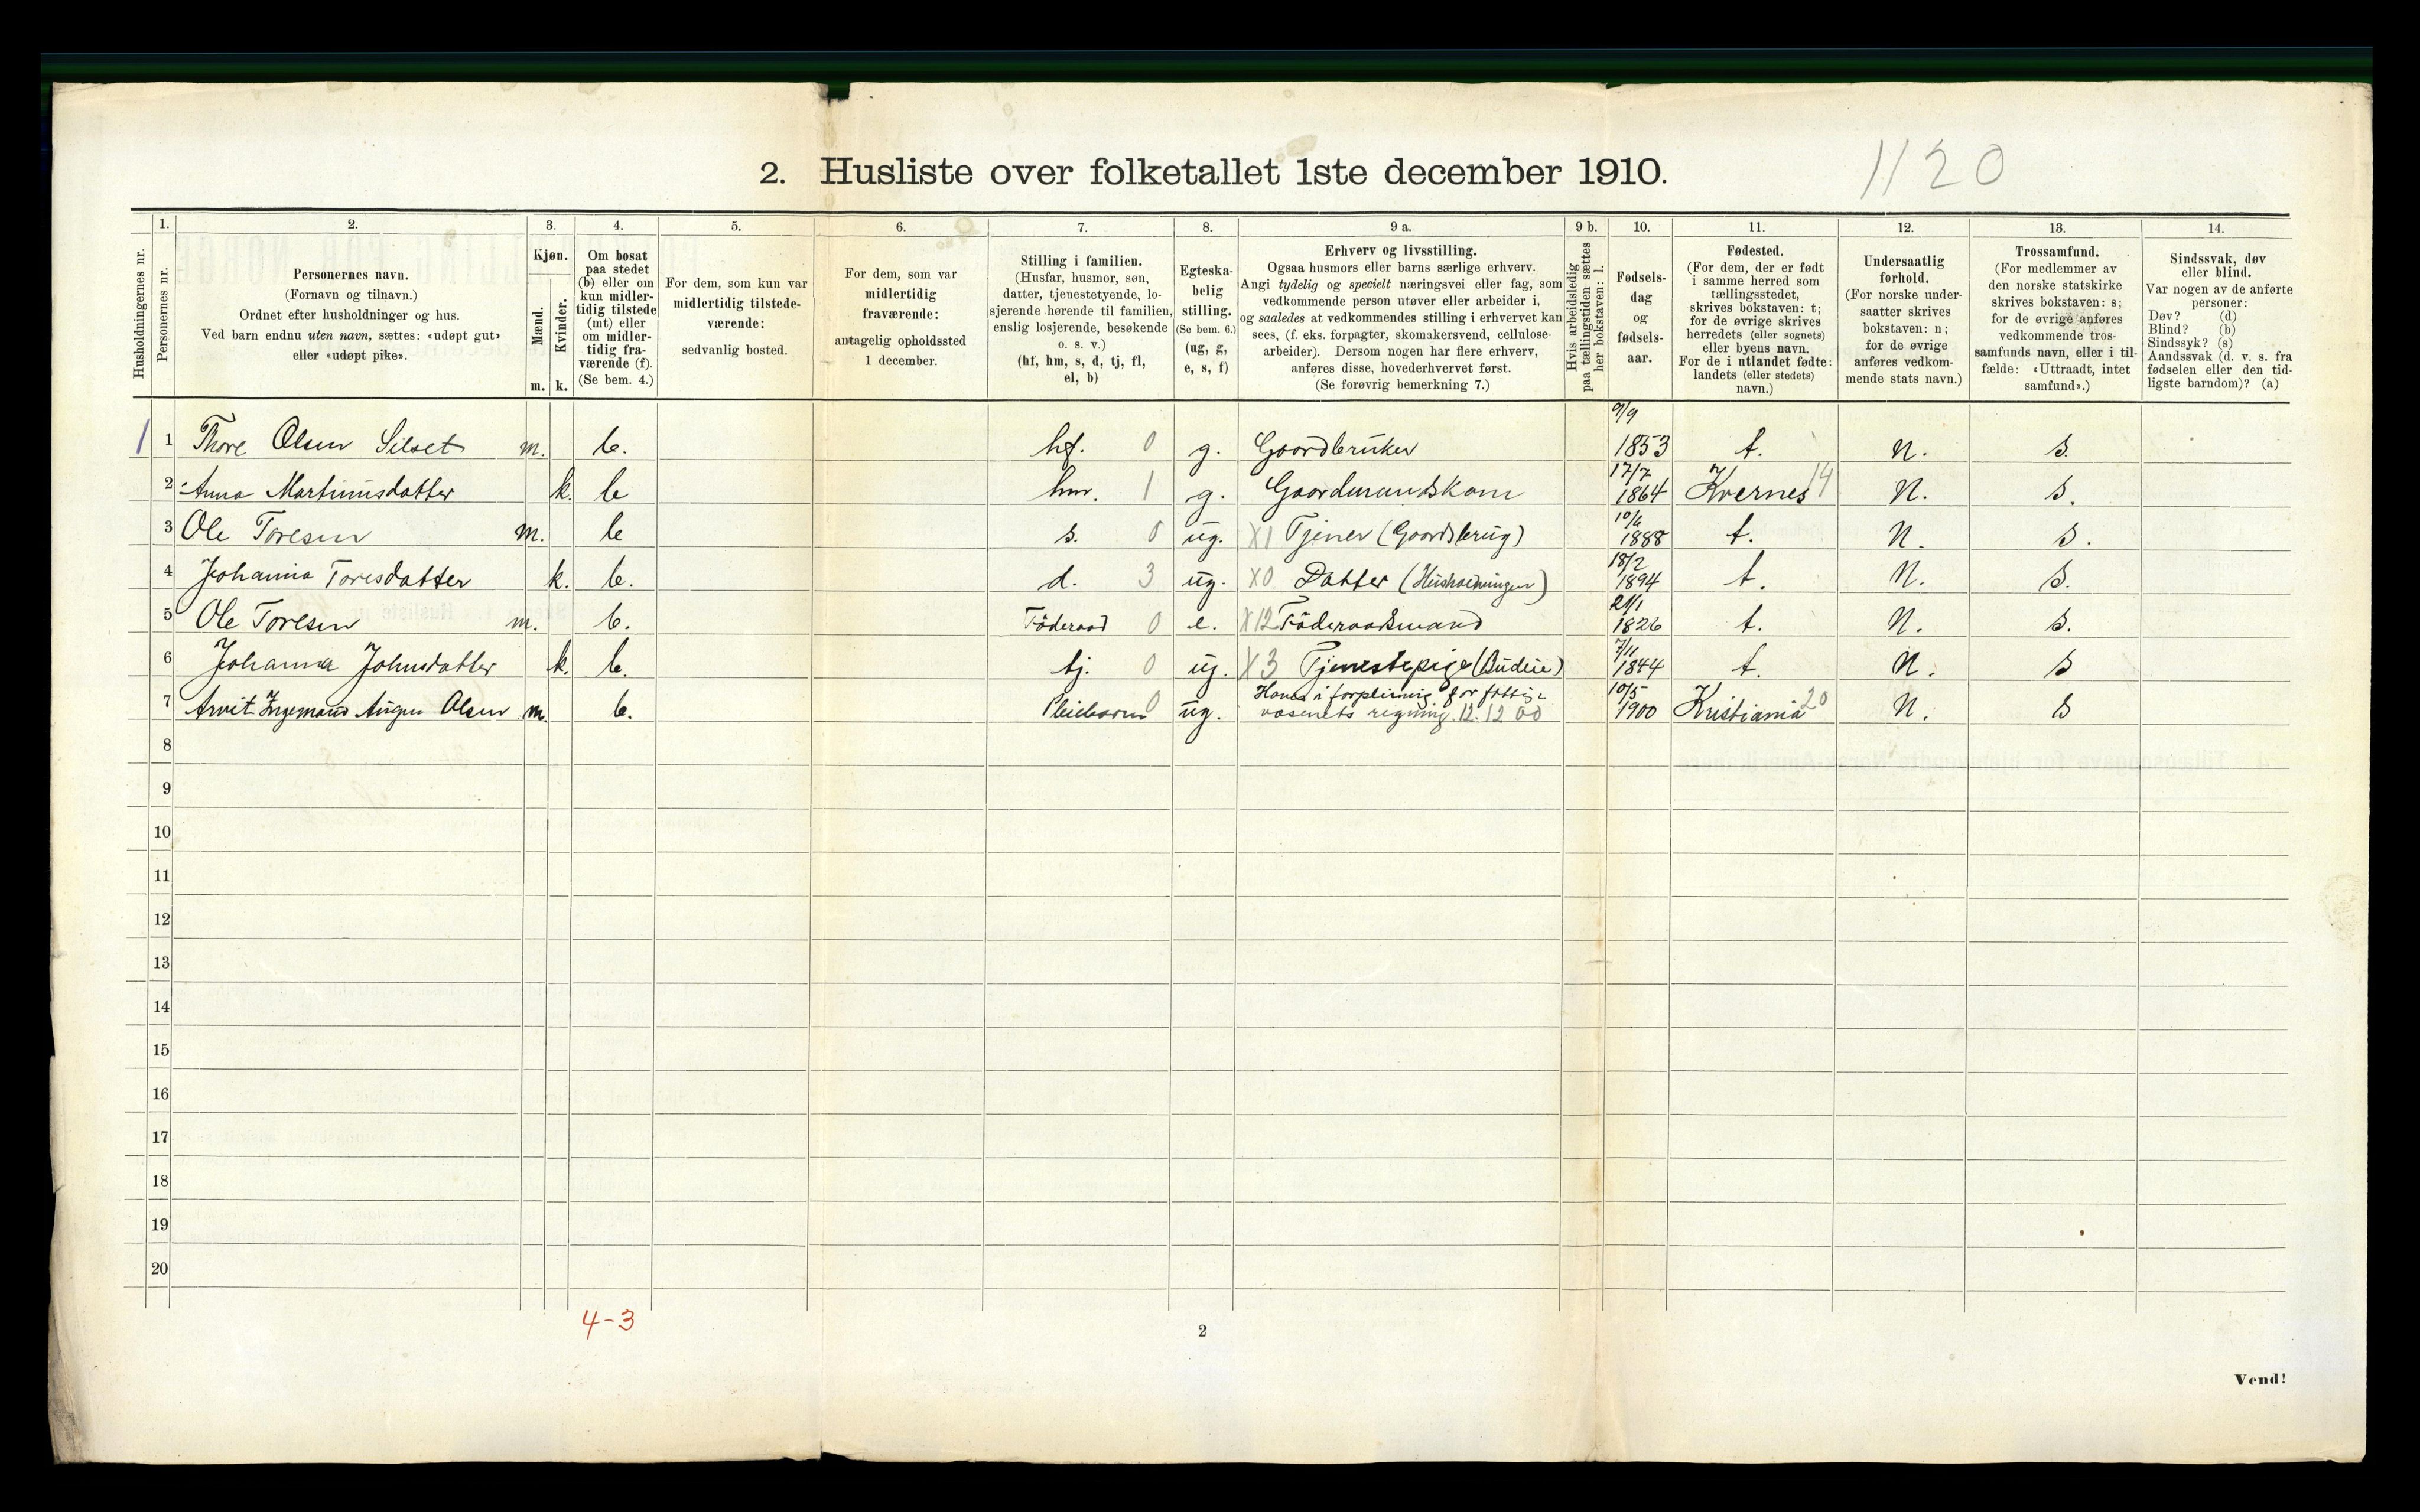 1120
2. Husliste over folketallet 1ste december 1910.
1. 2. 3. 4. 5. 6. 7. 8. 9 a. 9 b. 10. 11. 12. 13. 14.
Husholdningernes nr.
Personernes nr.
Personernes navn.
(Fornavn og tilnavn.)
Ordnet efter husholdninger og hus.
Ved barn endnu uten navn, sættes: «udøpt gut»
eller «udøpt pike».
Kjøn.
Mænd.
Kvinder.
m. k.
Om bosat
paa stedet
(b) eller om
kun midler-
tidig tilstede
(mt) eller
om midler-
tidig fra-
værende (f).
(Se bem. 4.)
For dem, som kun var
midlertidig tilstede-
værende:
sedvanlig bosted.
For dem, som var
midlertidig
fraværende:
antagelig opholdssted
1 december.
Stilling i familien.
(Husfar, husmor, søn,
datter, tjenestetyende, lo-
sjerende hørende til familien,
enslig losjerende, besøkende
o. s. v.)
(hf, hm, s, d, tj, fl,
el, b)
Egteska-
belig
stilling.
(Se bem. 6.)
(ug, g,
e, s, f)
Erhverv og livsstilling.
Ogsaa husmors eller barns særlige erhverv.
Angi tydelig og specielt næringsvei eller fag, som
vedkommende person utøver eller arbeider i,
og saaledes at vedkommendes stilling i erhvervet kan
sees, (f. eks. forpagter, skomakersvend, cellulose-
arbeider). Dersom nogen har flere erhverv,
anføres disse, hovederhvervet først.
(Se forøvrig bemerkning 7.)
Hvis arbeidsledig
paa tællingstiden sættes
her bokstaven: l.
Fødsels-
dag
og
fødsels-
aar.
Fødested.
(For dem, der er født
i samme herred som
tællingsstedet,
skrives bokstaven: t;
for de øvrige skrives
herredets (eller sognets)
eller byens navn.
For de i utlandet fødte:
landets (eller stedets)
navn.)
Undersaatlig
forhold.
(For norske under-
saatter skrives
bokstaven: n;
for de øvrige
anføres vedkom-
mende stats navn.)
Trossamfund.
(For medlemmer av
den norske statskirke
skrives bokstaven: s;
for de øvrige anføres
vedkommende tros-
samfunds navn, eller i til-
fælde: «Uttraadt, intet
samfund».)
Sindssvak, døv
eller blind.
Var nogen av de anførte
personer:
Døv? (d)
Blind? (b)
Sindssyk? (s)
Aandssvak (d. v. s. fra
fødselen eller den tid-
ligste barndom)? (a)
1 1 Thore Olsen Silset m. b. hf. 0 g. Gaardbruker 9/9 1853 t. n. s.
2 Anna Martinusdatter k. b hm. 1 g. Gaardmandskone 17/7 1864 Kvernes 14 n. s.
3 Ole Toresen m. b s. 0 ug. X1 Tjener (Gaardsbrug) 1888 t. n. s.
4 Johanna Toresdatter k. b. d. 3 ug. X0 Datter (Husholdningen) 18/2 1894 t. n. s.
5 Ole Toresen m. b. Föderaad 0 e. X12 Föderaadsmand 21/1 1826 t. n. s.
6 Johanna Johnsdatter k. b. tj. 0 ug. X3 Tjenestepige (Budeie) 7/11 1844 t. n. s
7 Arvit Ingemand Olsen m. b. Pleiebarn 0 ug. i forpleining for fattig- 10/5 1900 Kristiania 20 n. s
væsenets regning. 12.12 00
8
9
10
11
12
13
14
15
16
17
18
19
20
4-3
2
Vend!